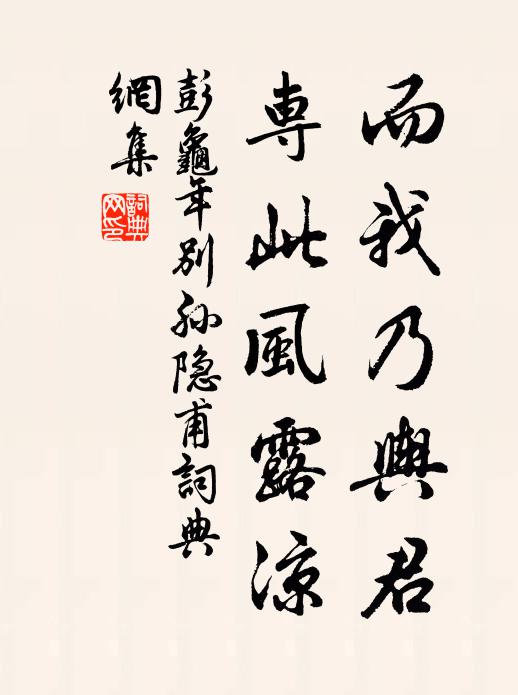 而我乃與君
専此風露涼
彭龜年別孫隐甫詞典
網集
詞典
网印